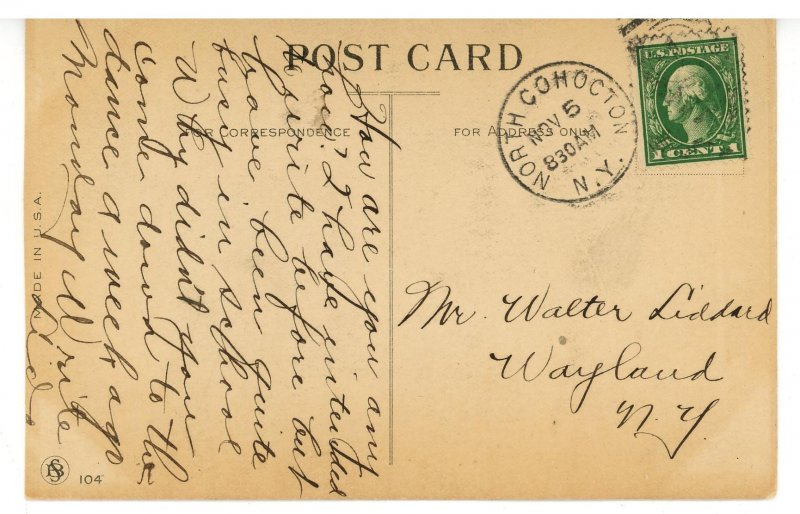 POST CARD
FOR CORRESPONDENCE
FOR ADDRESS ONLY
MADE IN U.S.A.
104
NORTH COHOCTON
NOV 5
830AM
N.Y.
U.S. POSTAGE
1 CENT 1
How are you any
I have intended
to write before but
have been quite
busy in school
Why didn't you
come down to the
dance a week ago
Monday Write
Mr. Walter Liddard
Wayland
N.Y